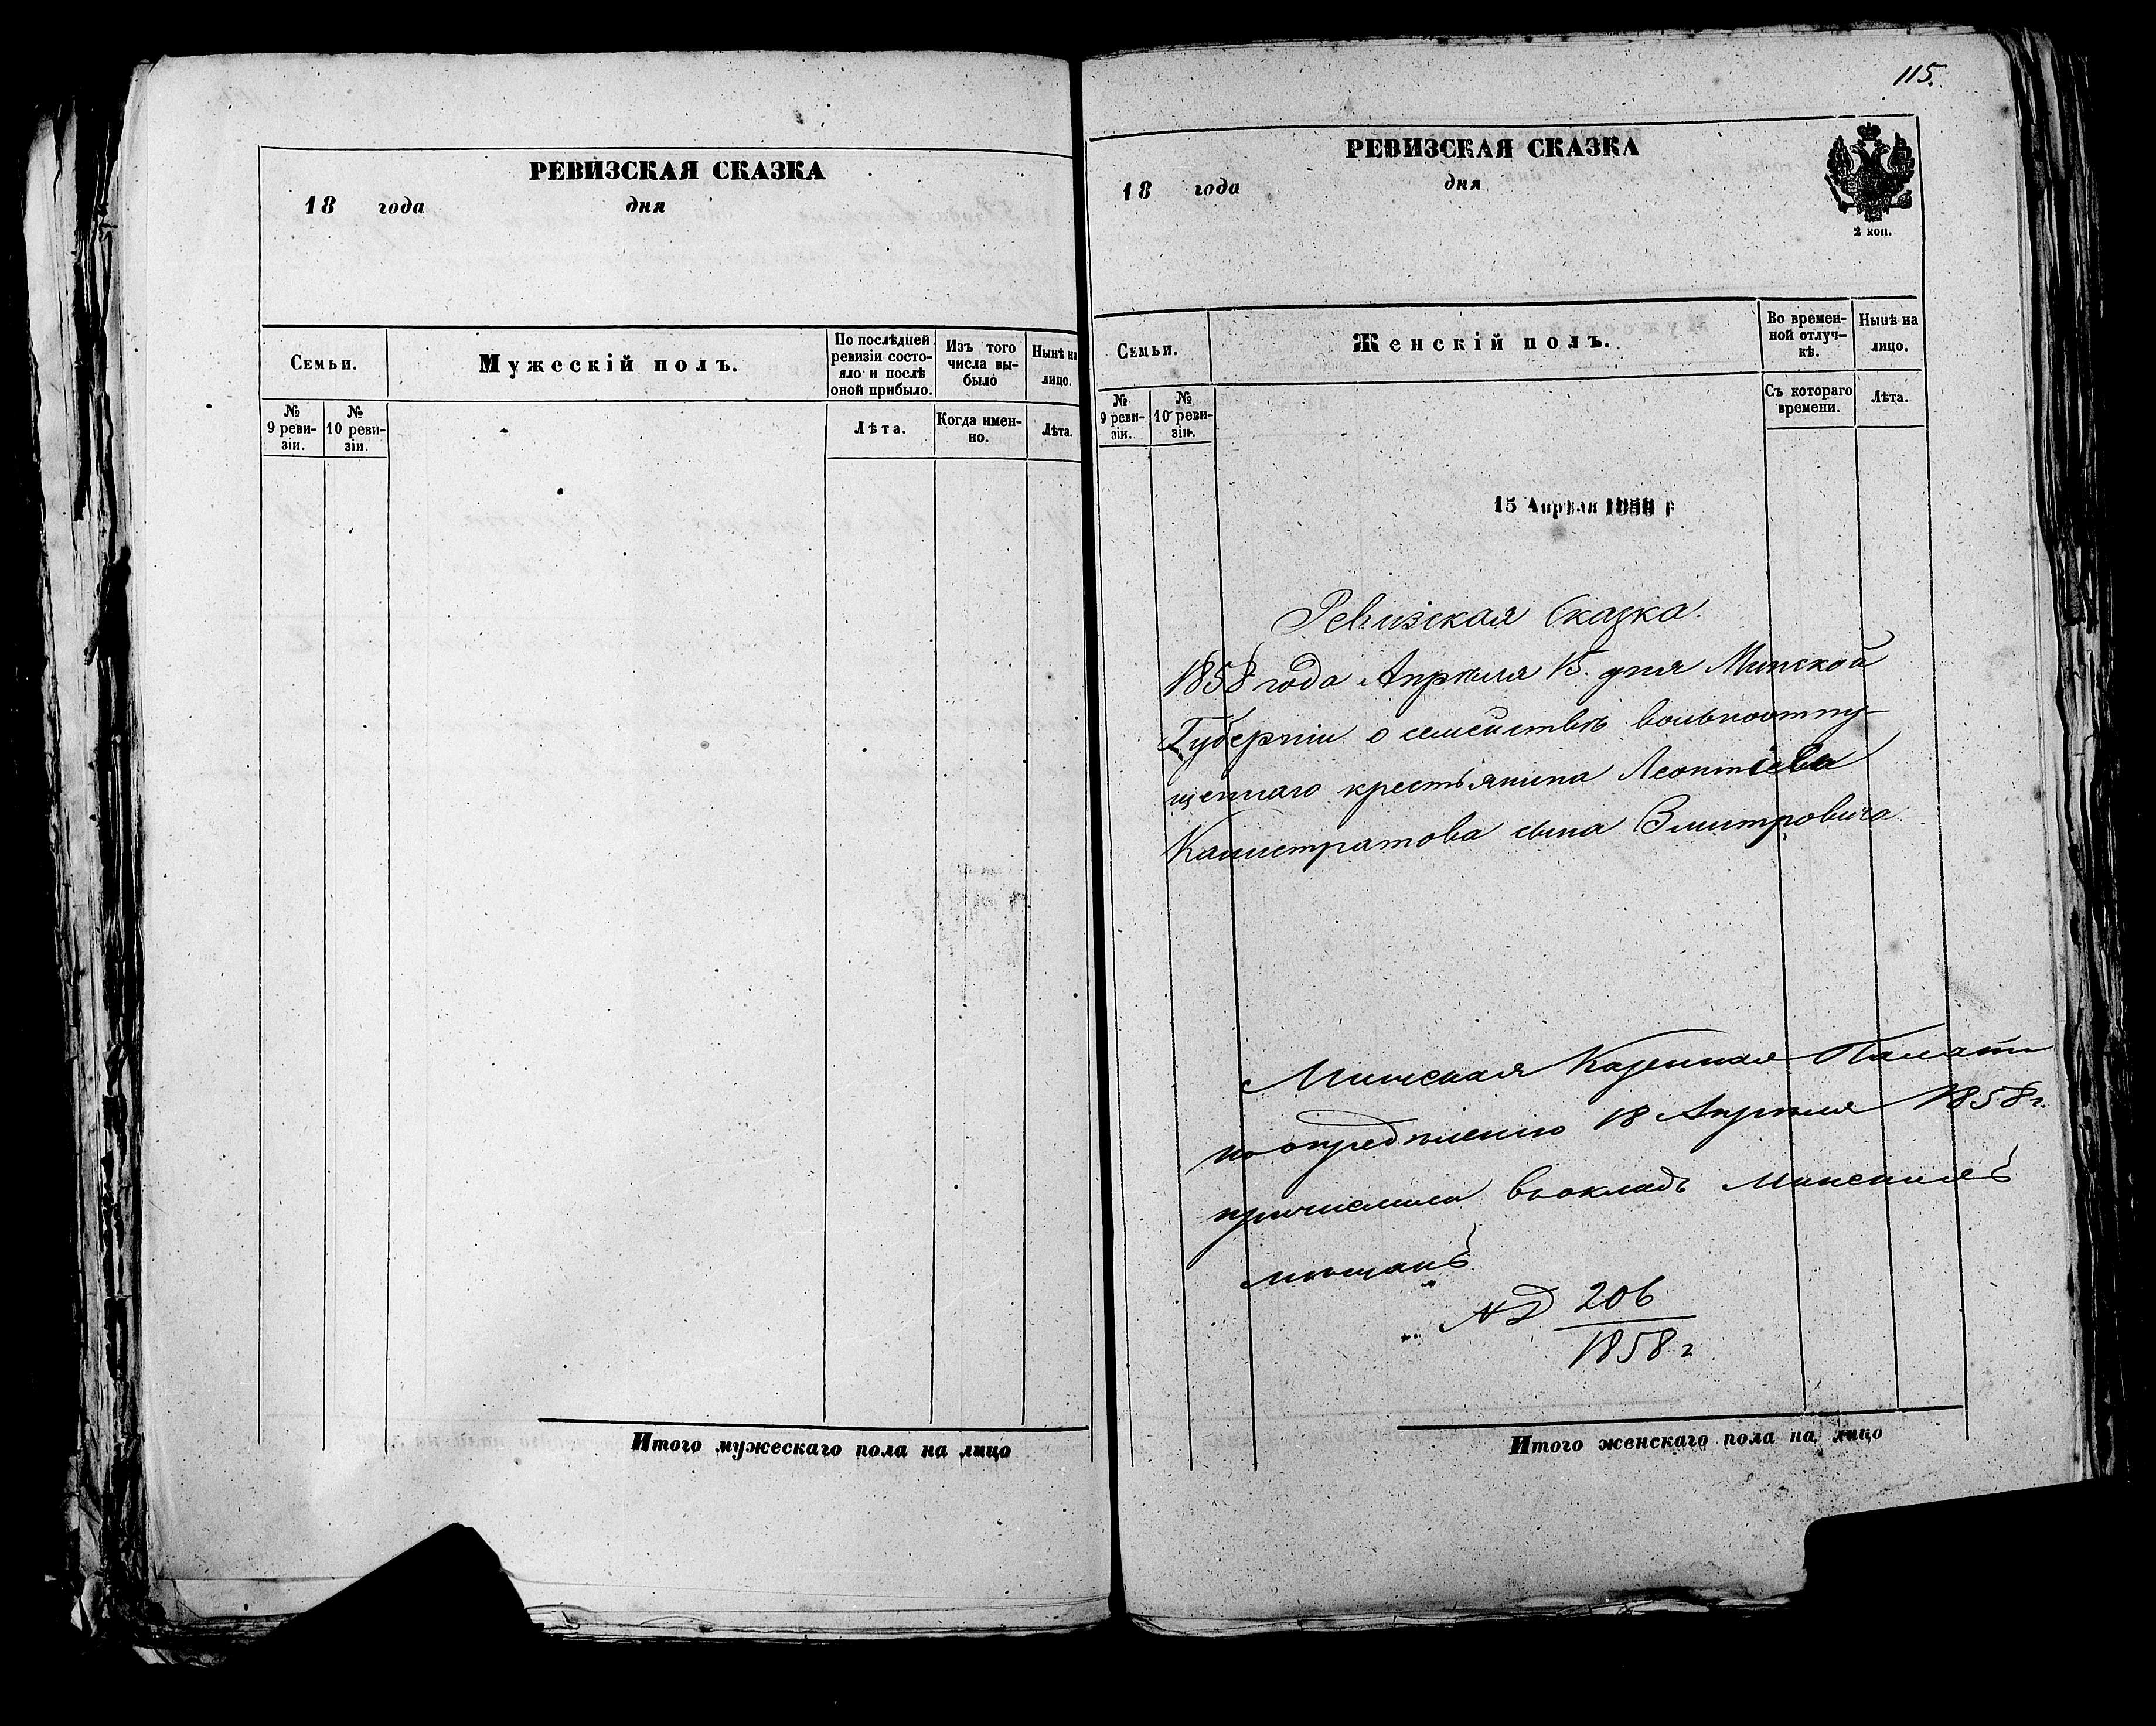 РЕВИЗСКАЯ СКАЗКА
18 года дня
Семьи.
Мужескій полъ.
По послѣдней ревизіи состояло и послѣ оной прибыло.
Изъ того числа выбыло
Нынѣ на лицо.
№ 9 ревизіи.
№ 10 ревизіи.
Лѣта.
Когда именно.
Лѣта.
Итого мужескаго пола на лицо
115.
РЕВИЗСКАЯ СКАЗКА
18 года дня
2 коп.
Семьи.
Женскій полъ.
Во временной отлучкѣ.
Нынѣ на лицо.
№ 9 ревизіи.
№ 10 ревизіи.
Съ котораго времени.
Лѣта.
15 Апрѣля 1858 г
Ревизская Сказка.
1858 года Апрѣля 15. дня Минской
Губерніи о семействѣ вольноотпу-
щеннаго крестьянина Леонтіева
Калистратова сына Змитровича.
Минская Казенная Палата
по опредѣленію 18 Апрѣля 1858 г.
причислила въ окладъ Минскихъ
мѣщанъ
№ Д 206
1858 г
Итого женскаго пола на лицо